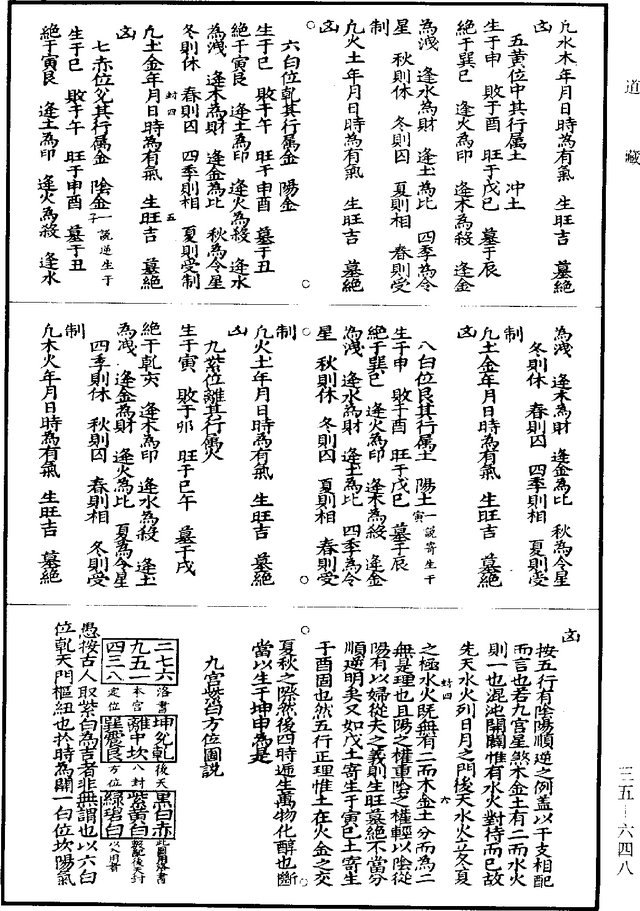 道藏
凢水木年月日時為有氣　生旺吉　墓絶
凶
五黃位中其行属土　冲土
生于申　敗于酉　旺于戊巳　墓于辰
絶于巽巳　逢火為印　逢木為殺　逢金
為洩　逢水為財　逢土為比　四季為令
星　秋則休　冬則囚　夏則相　春則受
制
凢火土年月日時為有氣　生旺吉　墓絶
凶
六白位乹其行属金　陽金
生于巳　敗于午　旺于申酉　墓于丑
絶于寅艮　逢土為印　逢火為殺　逢水
為洩　逢木為財　逢金為比　秋為令星
冬則休　春則囚　四季則相　夏則受制
封四　五
凢土金年月日時為有氣　生旺吉　墓絶
凶
七赤位兊其行属金　陰金一說逆生于子
生于巳　敗于午　旺于申酉　墓于丑
絶于寅艮　逢土為印　逢火為殺　逢水
為洩　逢木為財　逢金為比　秋為令星
冬則休　春則囚　四季則相　夏則受
制
凢土金年月日時為有氣　生旺吉　墓絶
凶
八白位艮其行属土　陽土一說寄生于寅
生于申　敗于酉　旺于戊巳　墓于辰
絶于巽巳　逢火為印　逢木為殺　逢金
為洩　逢水為財　逢土為比　四季為令
星　秋則休　冬則囚　夏則相　春則受
制
凢火土年月日時為有氣　生旺吉　墓絶
凶
九紫位離其行属火
生于寅　敗于卯　旺于巳午　墓于戌
絶于乹亥　逢木為印　逢水為殺　逢土
為洩　逢金為財　逢火為比　夏為令星
四季則休　秋則囚　春則相　冬則受
制
凢木火年月日時為有氣　生旺吉　墓絶
凶
按五行有陰陽順逆之例盖以干支相配
而言也若九宫星煞木金土有二而水火
則一也混沌開闢惟有水火對待而已故
先天水火列日月之門後天水火立冬夏
封四　六
之極水火既無有二而木金土分而為二
無是理也且陽之權重陰之權輕以陰從
陽有以婦從夫之義則生旺墓絶不當分
順逆明矣又如戊土寄生于寅巳土寄生
于酉固也然五行正理惟土在火金之交
夏秋之際然後四時逓生萬物化醇也斷
當以生于坤申為是
九宫紫白方位圖說
二七六　洛書　坤兊乹　後天　黒白赤　此圖用洛書
九五一　本宫　離中坎　八卦　紫黃白　數配後天卦
四三八　定位　巽震艮　方位　綠碧白　以入用者
愚按古人取紫白為吉者非無謂也以六白
位乹天門樞紐也於時為開一白位坎陽氣
三五—六四八